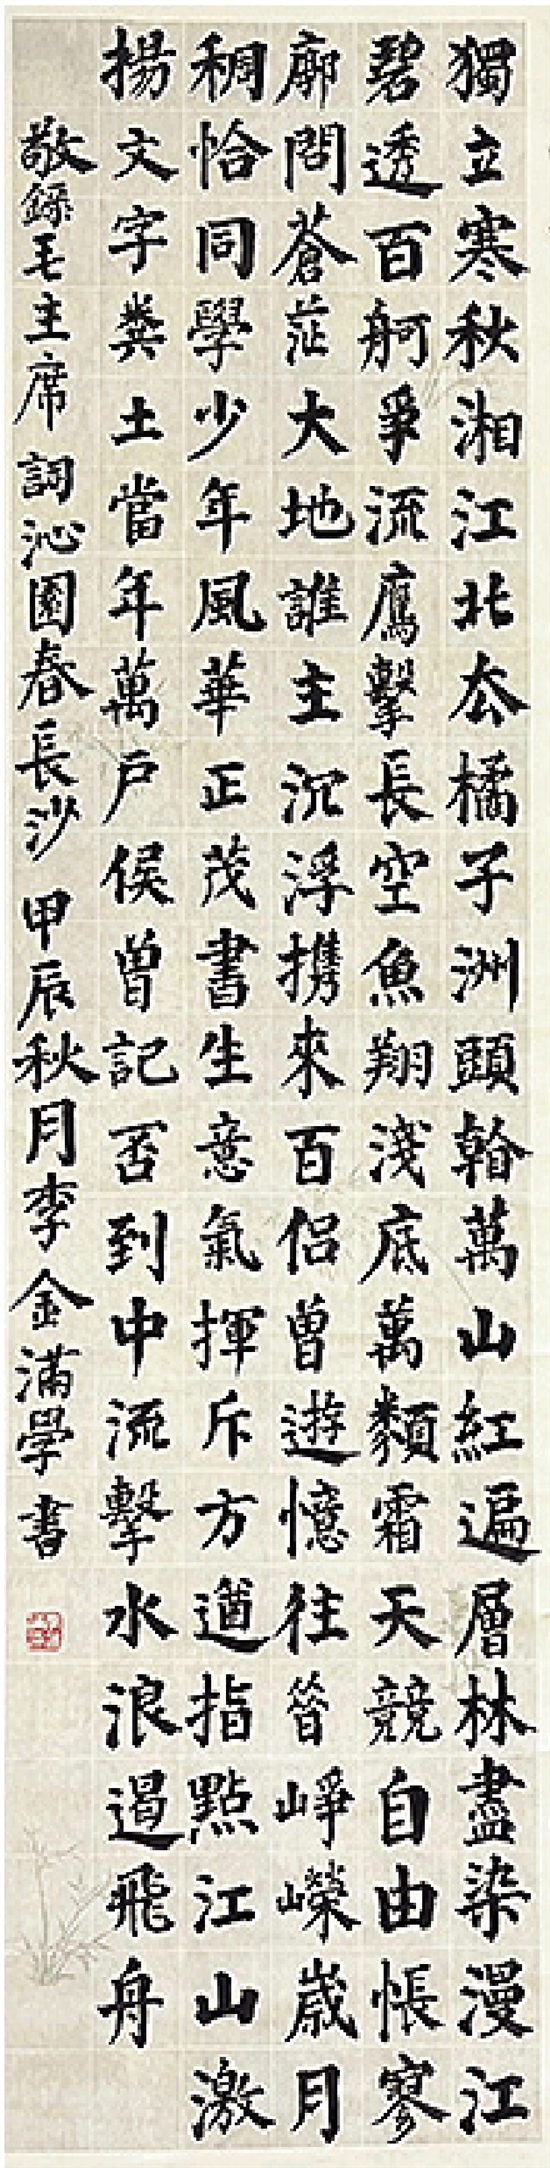 獨立寒秋湘江北厺橘子洲頭看萬山紅遍層林盡染漫江
碧透百舸爭流鷹擊長空魚翔淺底萬類霜天競自由悵寥
廓問蒼茫大地誰主沉浮携來百侶曾遊憶往昔崢嶸歲月
稠恰同學少年風華正茂書生意氣揮斥方遒指點江山激
揚文字糞土當年萬戶侯曾記否到中流擊水浪遏飛舟
敬錄毛主席詞沁園春長沙甲辰秋月李金滿學書